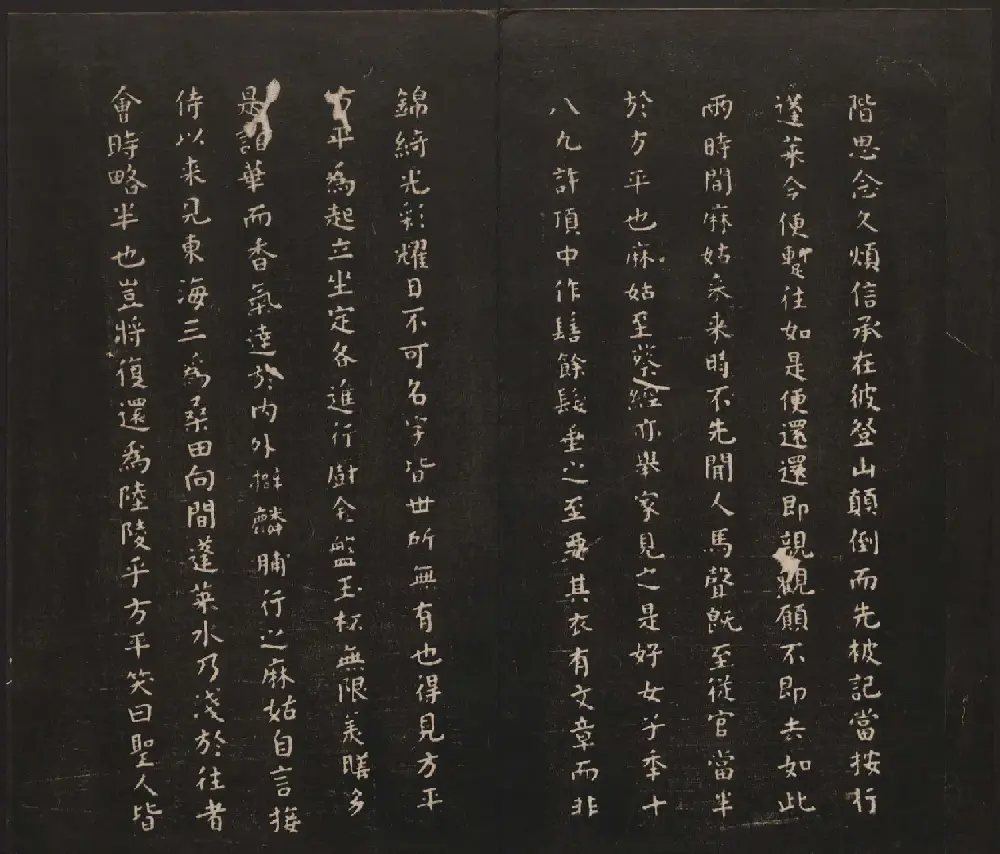 階思念久煩信承在彼登山顛倒而先被記當按行
蓬萊今便蹔往如是便還還即親觀願不即去如此
兩時間麻姑來來時不先聞人馬聲旣至從官當半
於方平也麻姑至蔡經亦舉家見之是好女子年十
八九許頂中作髻餘髮垂之至要其衣有文章而非
錦綺光彩耀日不可名字皆世所無有也得見方平
方平為起立坐定各進行廚金盤玉杯無限美膳多
是諸華而香氣達於內外擗麟脯行之麻姑自言接
侍以來見東海三為桑田向間蓬萊水乃淺於往者
會時略半也豈將復還為陸陵乎方平笑曰聖人皆